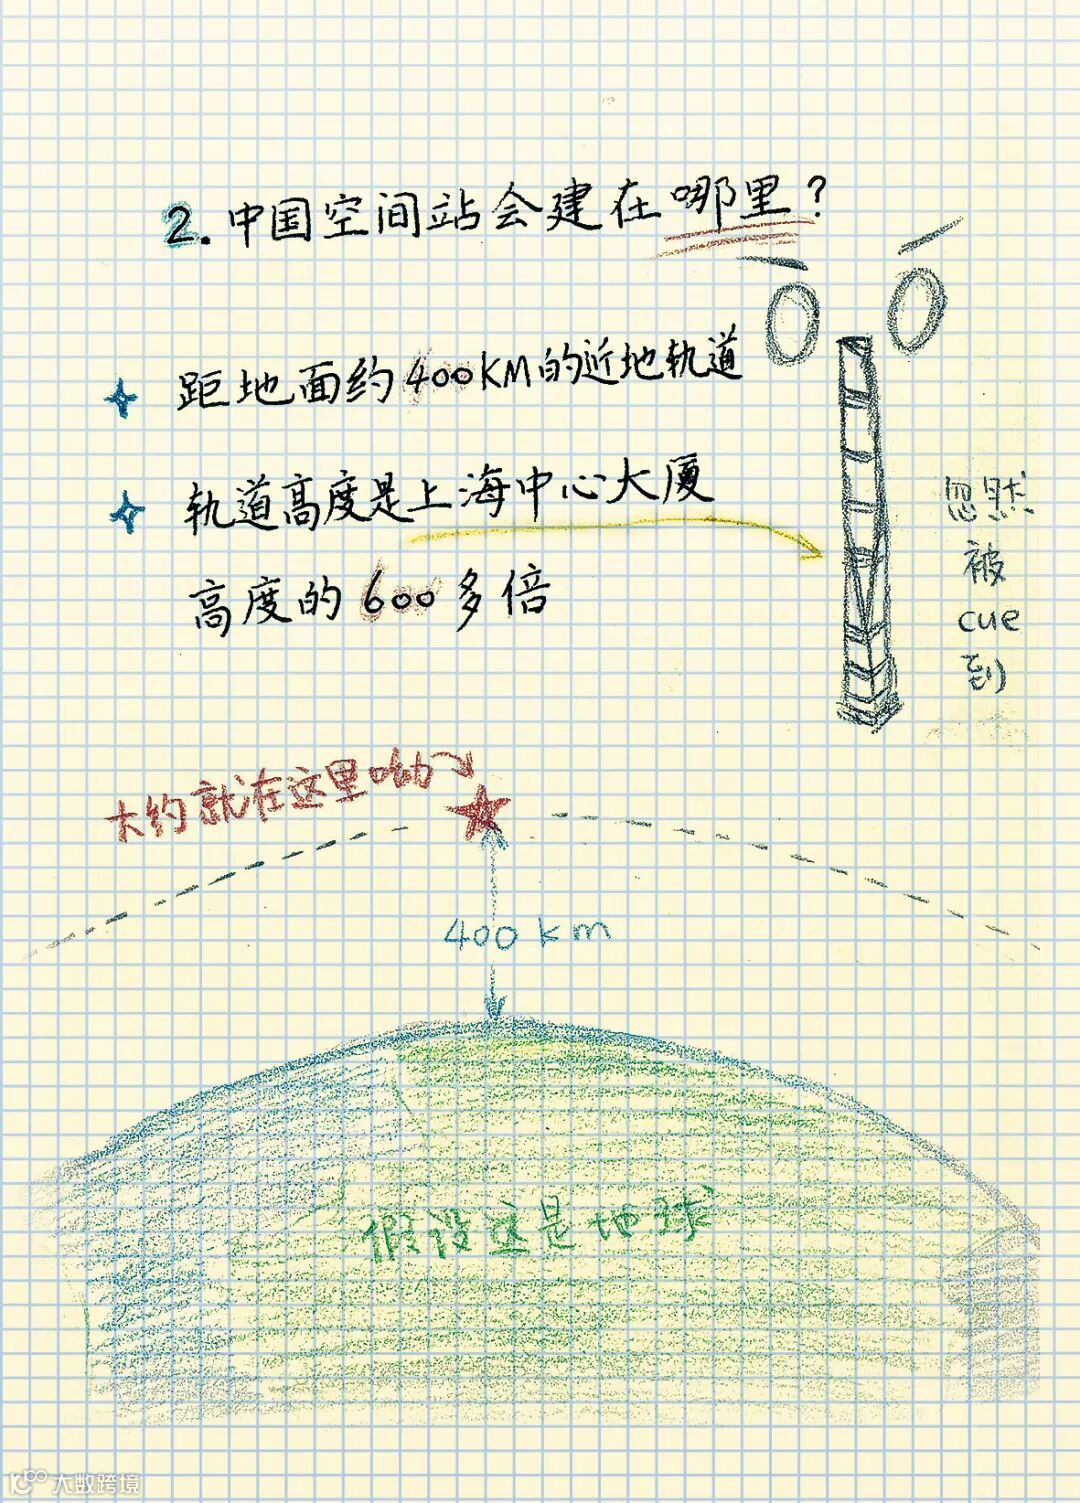 2.中国空间站会建在哪里?
距地面约400KM的近地轨道
轨道高度是上海中心大厦
高度的600多倍
忽然
被
cue
到
大约就在这里呦
400km
假设这是地球
大数跨境